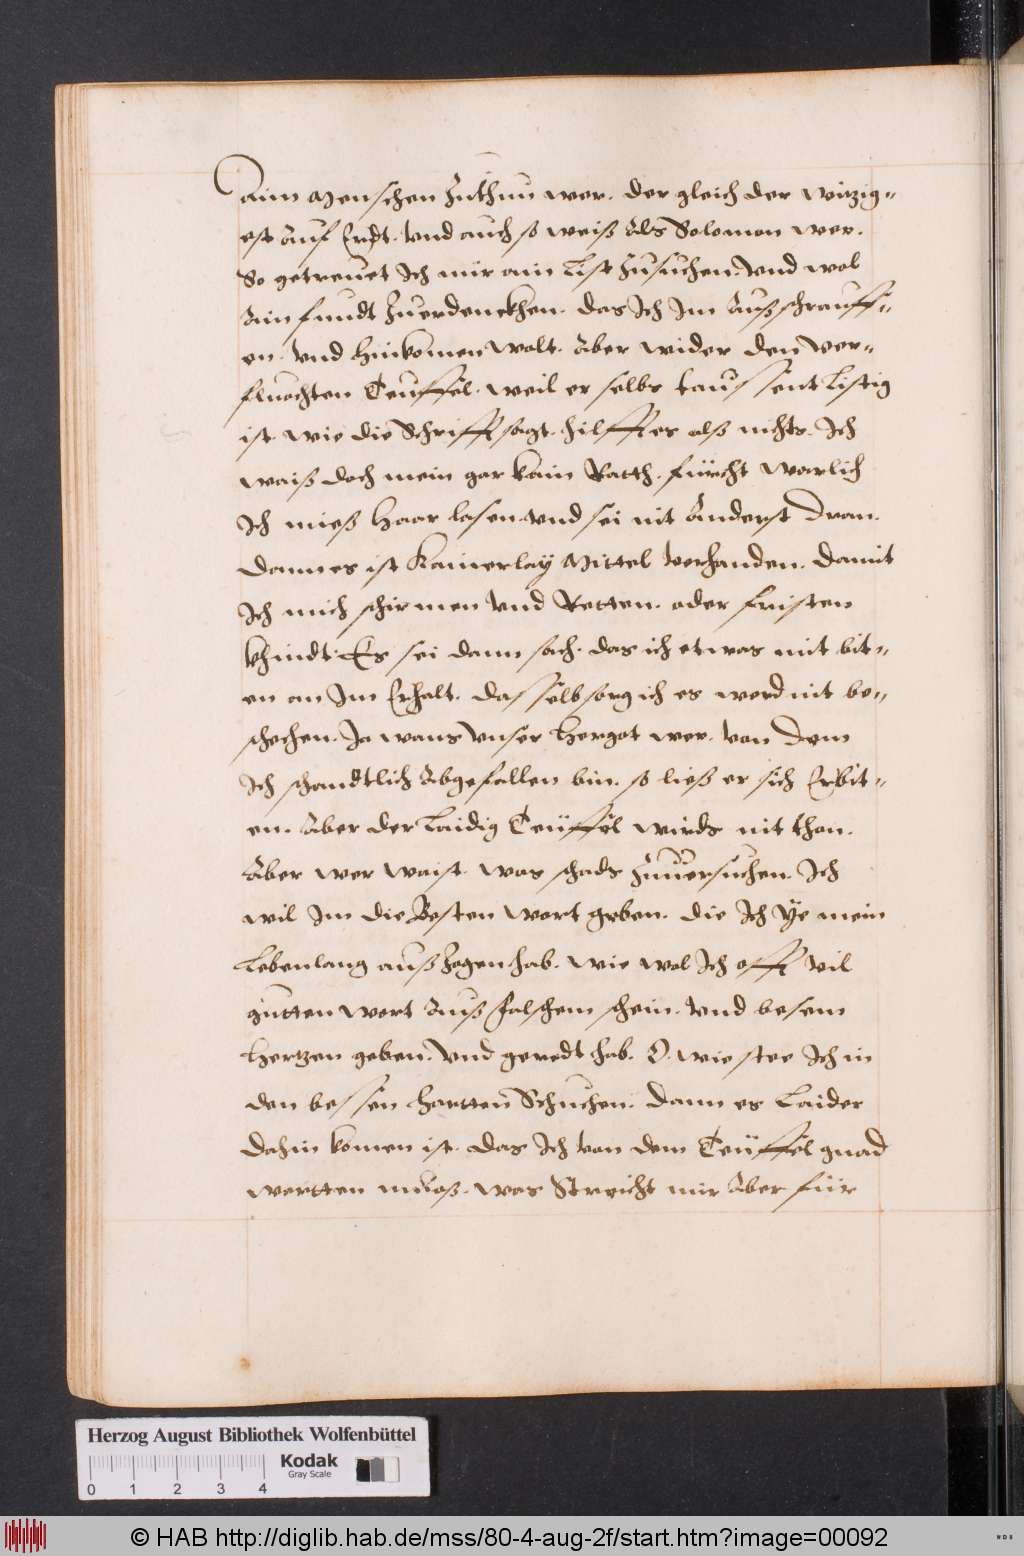 Aim Menschen Zuthun wer. der gleich der witzig-
est Auf Erdt. Und auch so weiß Als Solomon wer.
So getreuet Ich mir ain List Zusuchen. Und wol
Ain fundt Zuerdenckhen. das Ich Im Auß schrauff-
en. Und hinkomen wolt. Aber wider den ver-
fluechten Teuffel. weil er selbs taussent Listig
ist. wie die Schrifft sagt. hilfft es alß nichts. Ich
waiß doch mein gar kain Ratth. fürcht warlich
Ich mieß Haar lasen. Und sei nit Anderst dran.
dann es ist Kainerlay Mittel vorhanden. damit
Ich mich schirmen Und Retten. oder fristen
khindt. Es sei dann sach. das ich etwas mit bit-
en an Im Erhalt. das selb sorg ich es werd nit be-
schechen. Ja wans Unser Hergot wer. von dem
Ich schandtlich Abgefallen bin. so ließ er sich Erbit-
en. Aber der Laidig Teüffel wirds nit thon.
Aber wer waist. was schads Zuuersuchen. Ich
wil Im die Besten wort geben. die Ich Ye mein
Lebenlang auß Zogen hab. wie wol Ich offt vil
gutten wort Auß falschem schein. Und besem
Hertzen geben. Und geredt hab. O. wie stee Ich in
den bessen hartten Schuchen. dann es Laider
dahin komen ist. das Ich von dem Teüffel gnad
wortten muoß. was Streicht mir Aber für
Herzog August Bibliothek Wolfenbüttel
Kodak
Gray Scale
0 1 2 3 4
© HAB http://diglib.hab.de/mss/80-4-aug-2f/start.htm?image=00092